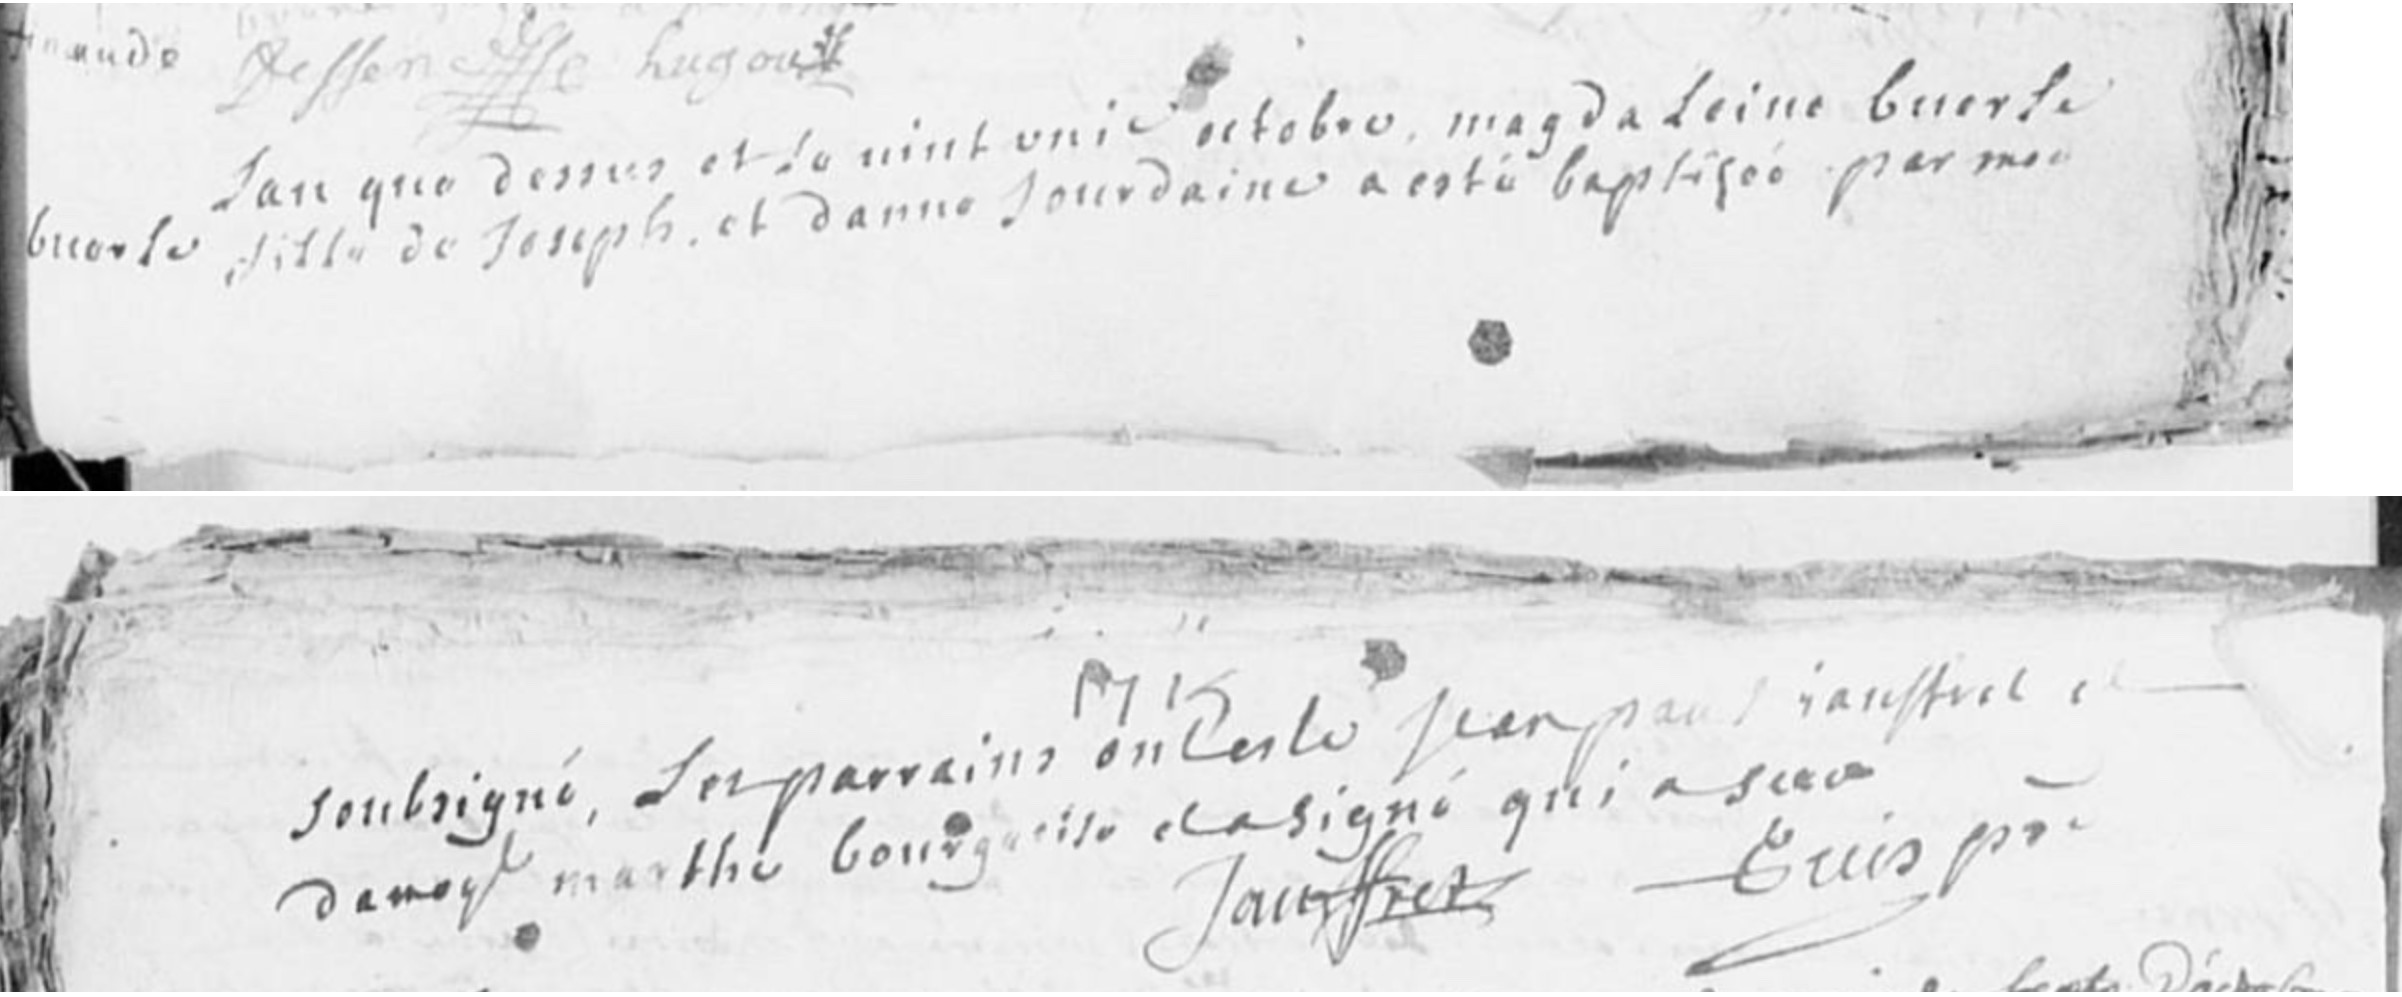 Dessenesse hugoutt
Lan que dessus et le vint unie octobre, magdaleine buerle
buerle fille de Joseph, et danne Jourdaine a esté baptisée par moi
1715
soubsigné, Les parrains ont esté Jean paul iauffret et
damoyle marthe bourguise et a signé qui a sceu
Jauffret Guis pre